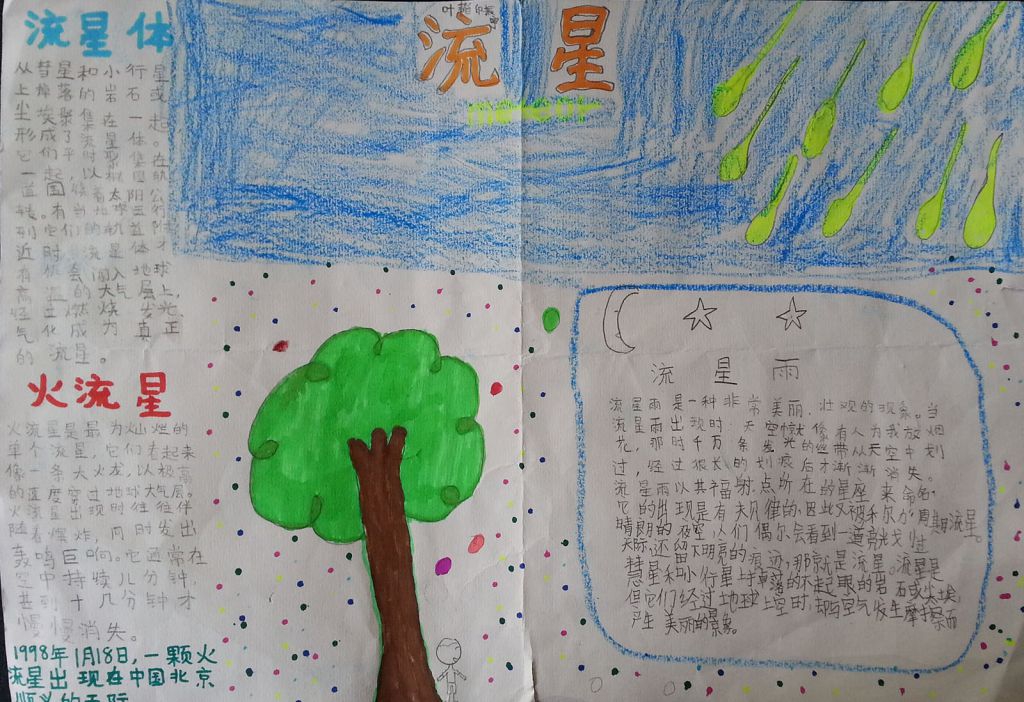 流星体
从彗星和小行星
上掉落的岩石或
尘埃聚集在一起
形成了流星体。
它们平时聚集在
一起围绕着太阳公
转。有当地球
列它们的轨
近时流星体才
有机会闯入地球
高温的大气层上,
燃烧发光、
气化成为真正
的流星。
火流星
火流星是最为灿烂的
单个流星,它们看起来
像一条大火龙,以极高
的速度穿过地球大气层。
火流星出现时往往伴
随着爆炸,同时发出
轰鸣巨响。它通常在
空中持续几分钟,
甚到十几分钟才
慢慢消失。
1998年1月18日,一颗火
流星出现在中国北京
顺义的天际
流星
meteor
流星雨
流星雨是一种非常美丽、壮观的现象。当
流星雨出现时,天空就像有人为我放烟
花,那时千万条发光的丝带从天空中划
过,经过很长的划痕后才渐渐消失。
流星雨以其福射点所在的星座来命名。
它的出现是有
晴朗的夜空,人们偶尔会看到一道亮光
天际,还留下明亮的痕迹,那就是流星。流星是
彗星和小行星上掉落的不起眼的岩石或尘埃,
但它们经过地球上空时,却与空气发生摩擦而
产生美丽的景象。